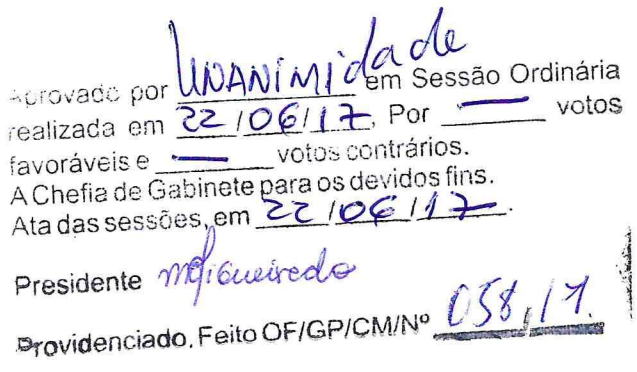 Aprovado por UNANIMIdade em Sessão Ordinária
realizada em 22/06/17, Por — votos
favoráveis e — votos contrários.
A Chefia de Gabinete para os devidos fins.
Ata das sessões, em 22/06/17.
Presidente
Providenciado, Feito OF/GP/CM/Nº 058/17.